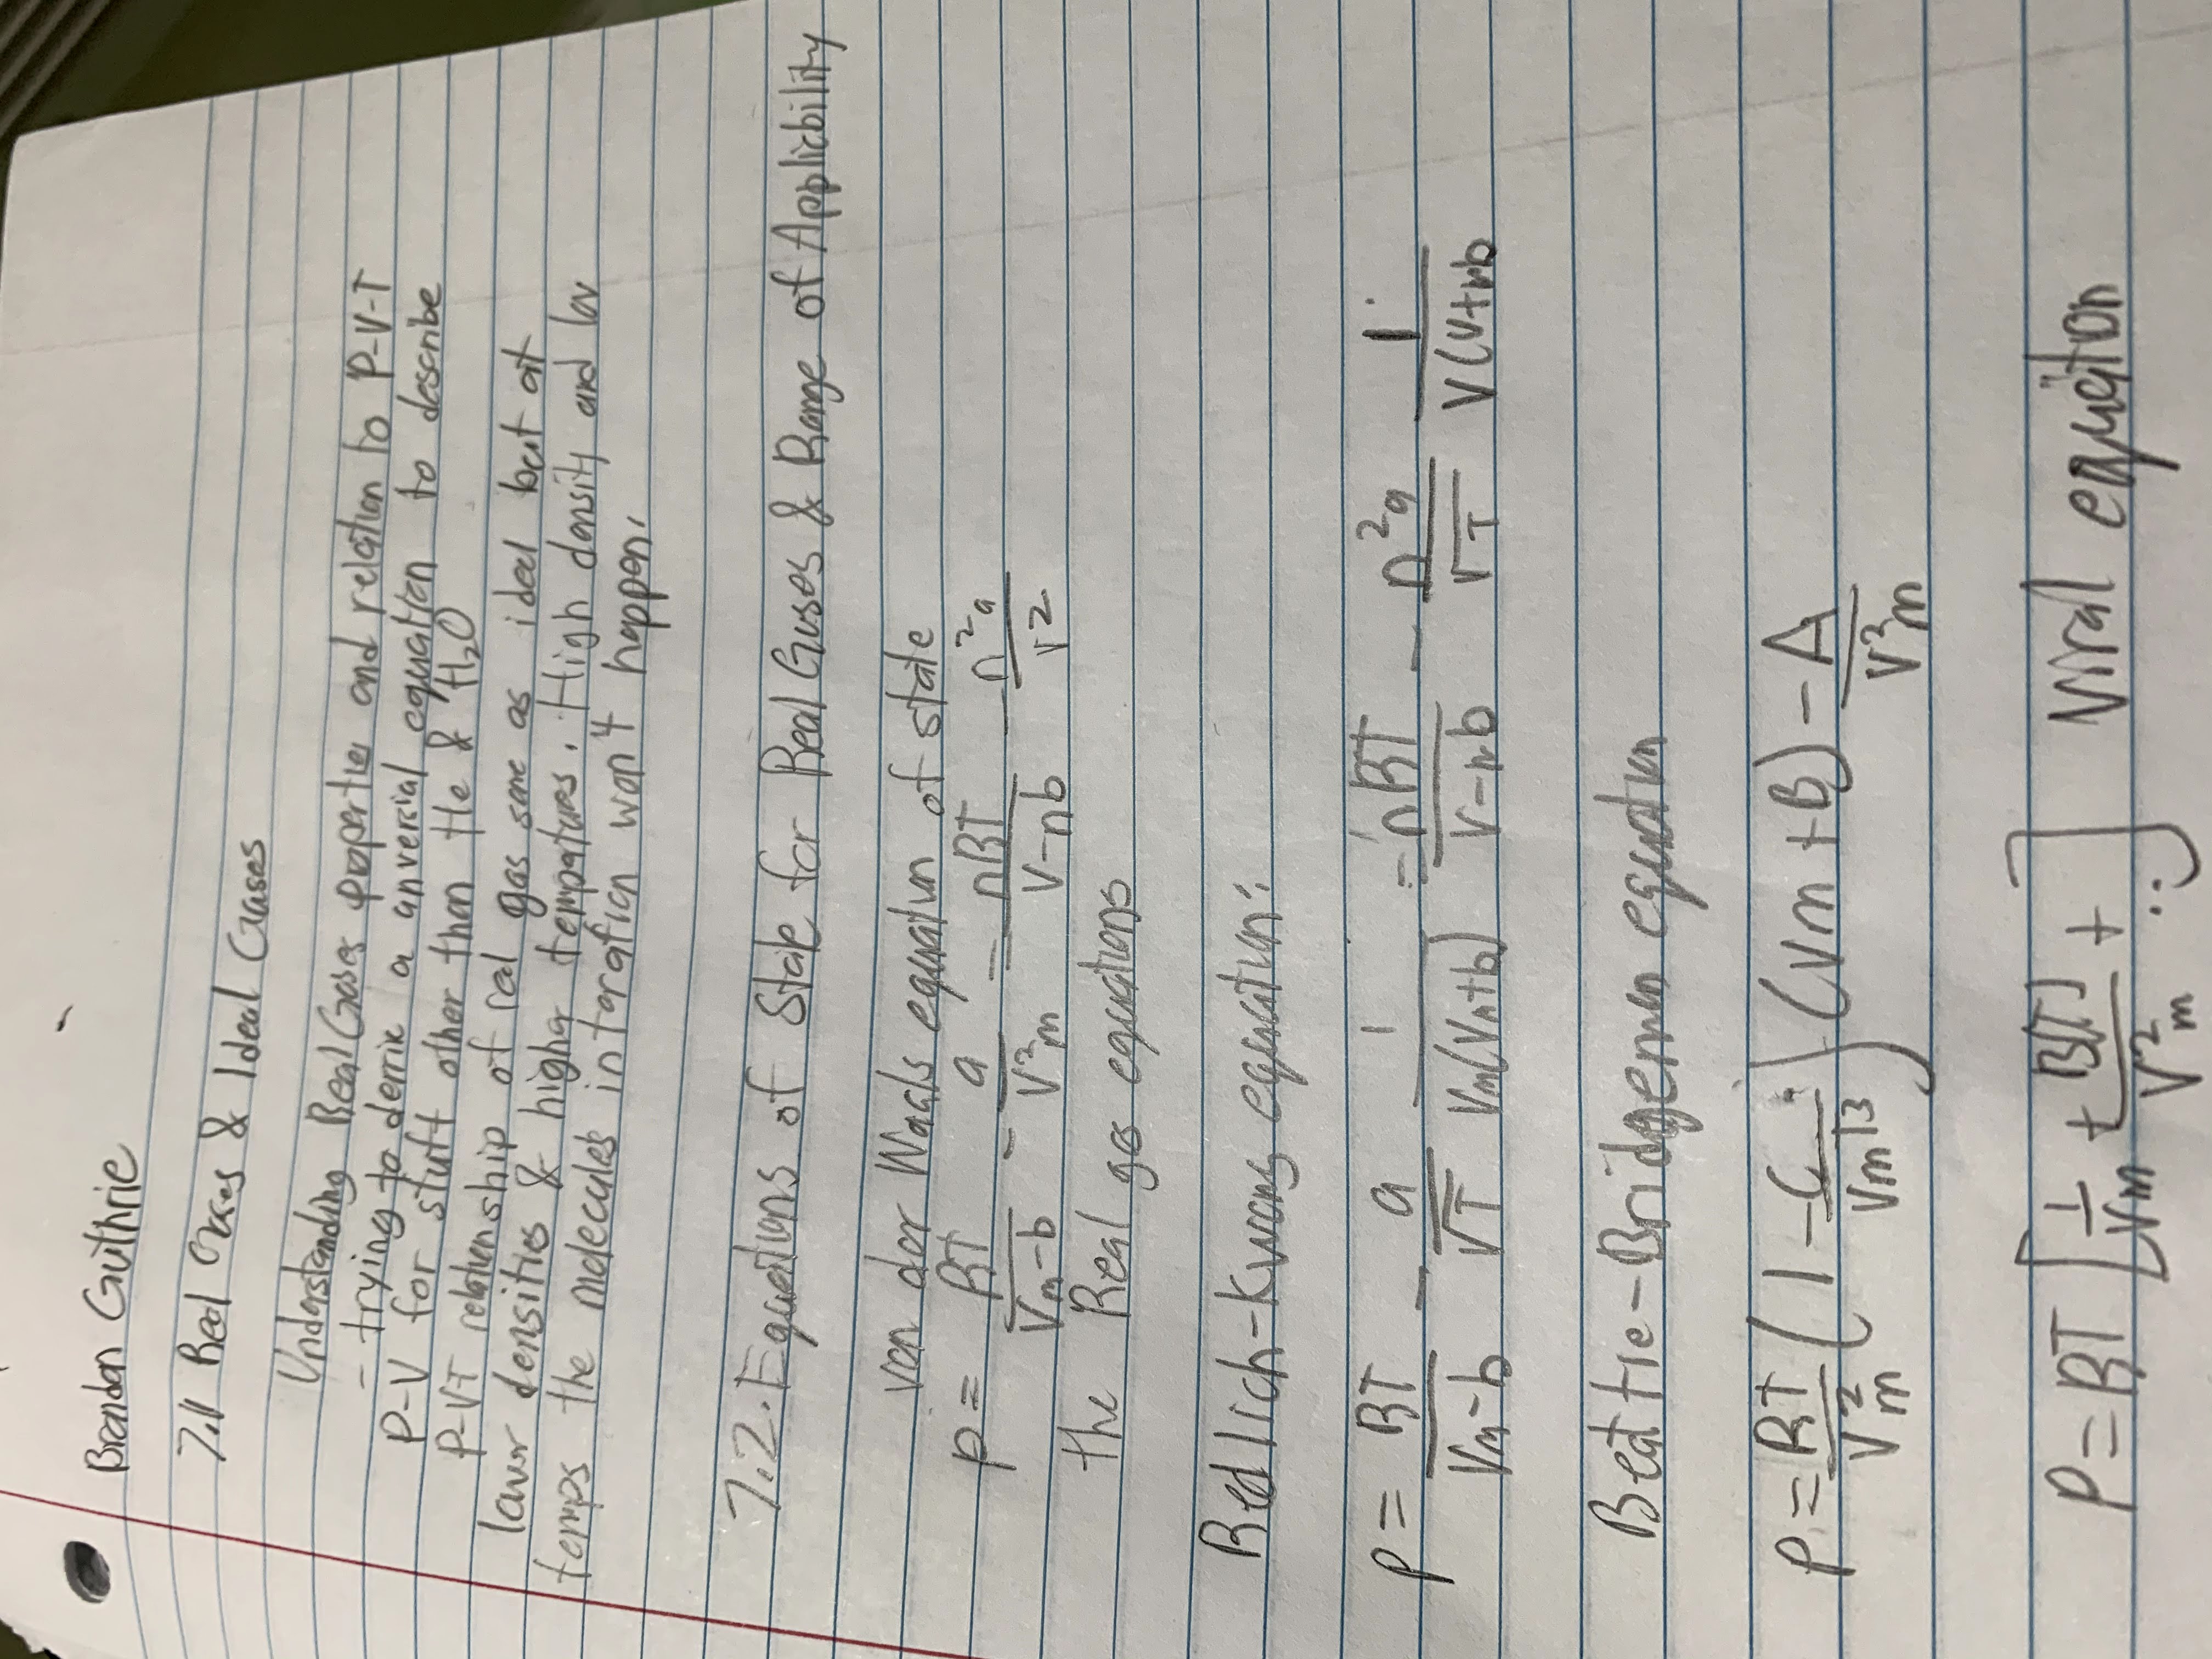 Brandon Guthrie
7.1 Real Gases & Ideal Gases
Understanding Real Gases properties and relation to P-V-T
- trying to derrive a anversial equation to describe
P-V for stuff other than He & H₂O
P-VT relationship of real gas same as ideal but at
lower densities & higher tempatures. High density and low
temps the molecules interation won't happen.
7.2. Equations of State for Real Gases & Range of Applicbility
van der Waals equation of state
p = RT/(Vm-b) - a/V²m = nRT/(V-nb) - n²a/V²
the Real gas equations
Redlich-Kwong equation:
p = RT/(Vm-b) - a/√T 1/(Vm(Vm+b)) = nRT/(V-nb) - n²a/√T 1/(V(V+nb
Beattie-Bridgeman equation
p = RT/V²m (1 - C/(VmT3)) (Vm + B) - A/V²m
P = RT [1/Vm + B(T)/V²m + ..] Viral equation